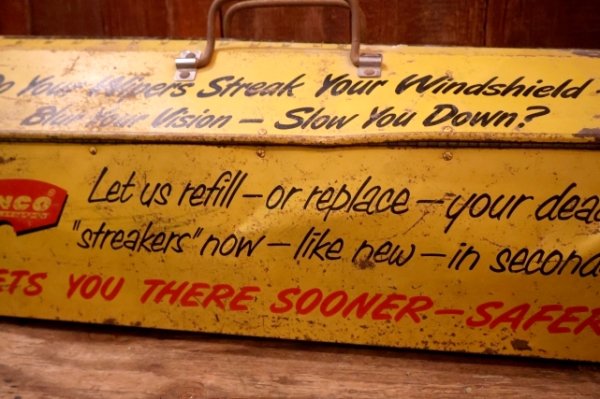 o Your Wipers Streak Your Windshield -
Blur Your Vision — Slow You Down?
NCO
Let us refill — or replace — your dea
"streakers" now — like new — in second
ETS YOU THERE SOONER — SAFER